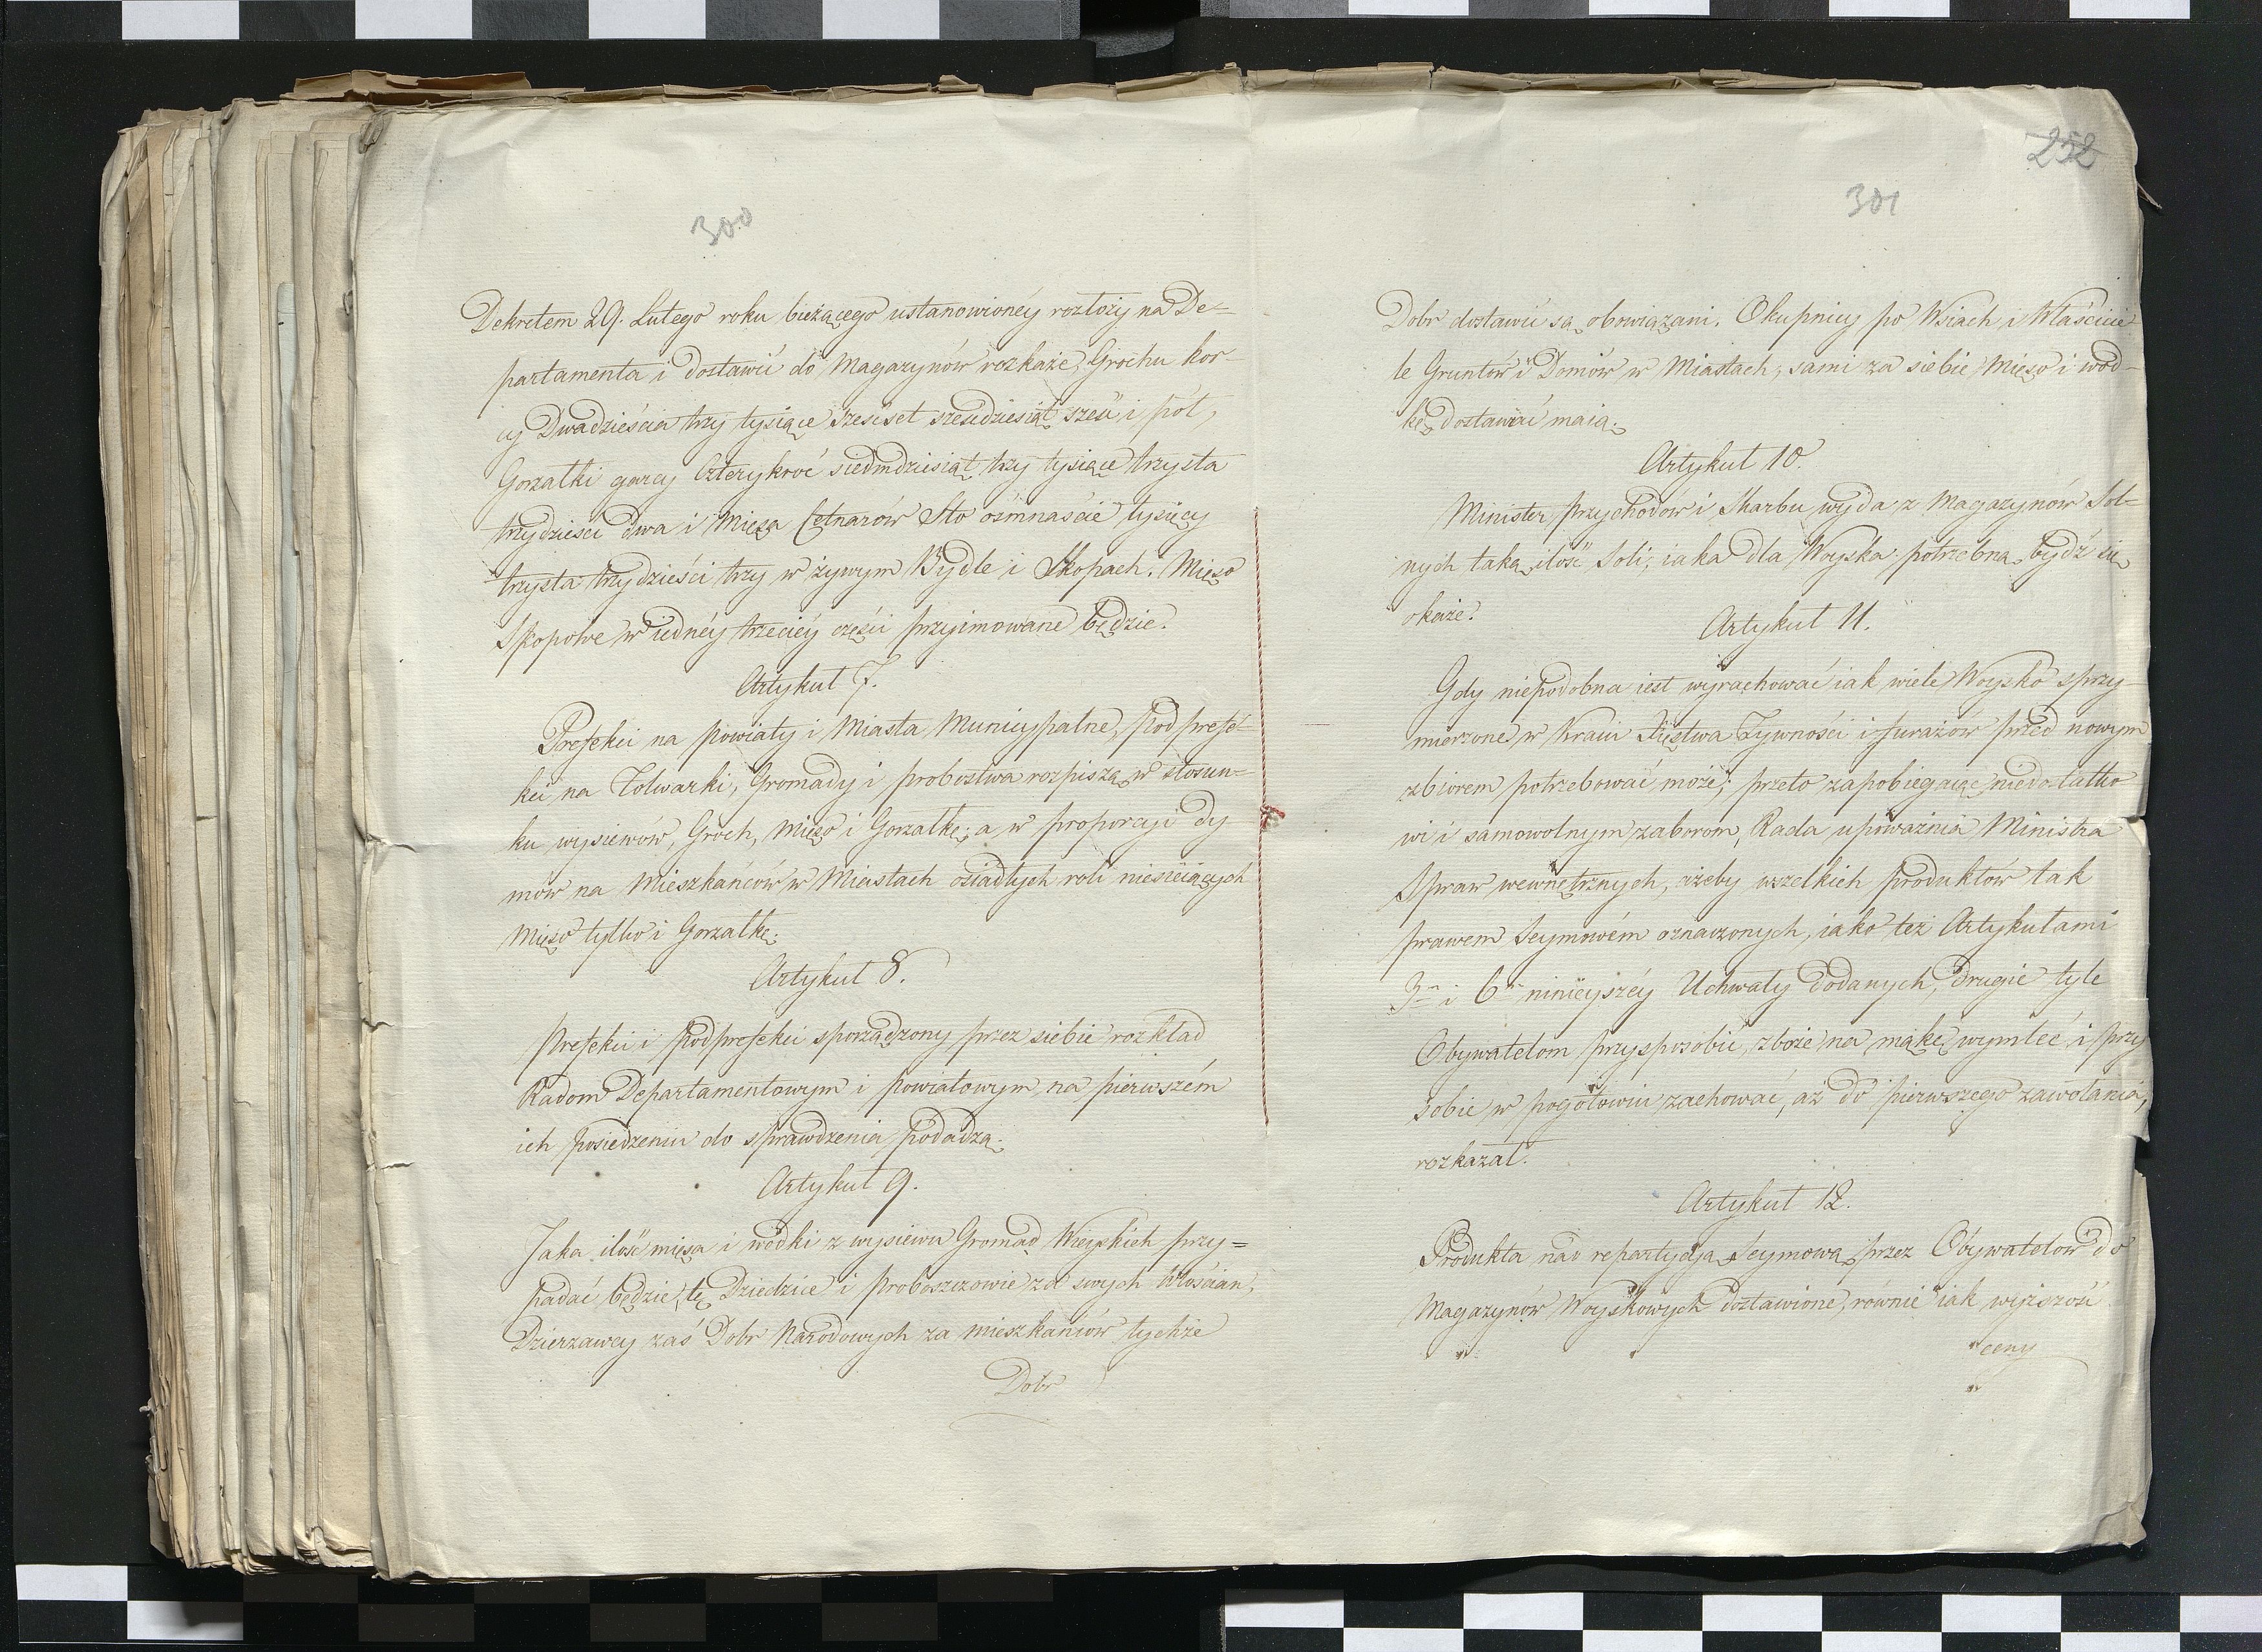 300
Dekretem 29. Lutego roku bieżącego ustanowionéy rozłoży na De=
partamenta i dostawić do Magazynów rozkaże, Grochu kor-
cy Dwadzieścia trzy tysiące sześćset sześćdziesiąt sześć i pół,
Gorzałki garcy Czterykroć siedmdziesiąt trzy tysiące trzysta
trzydzieści dwa i Mięsa Cetnarów Sto ośmnaście tysięcy
trzysta trzydzieści trzy w żywym Bydle i Skopach. Mięso
Skopowe w iednéy trzeciéy części przyimowane będzie.
Artykuł 7.
Prefekci na powiaty i Miasta Municypalne, podprefe-
kci na Folwarki, Gromady i probostwa rozpiszą w stosun=
ku wysiewów, Groch, Mięso i Gorzałkę; a w proporcyi dy-
mów na Mieszkańców w Miastach osiadłych roli niesieiących
Mięso tylko i Gorzałkę.
Artykuł 8.
Prefekci i podprefekci sporządzony przez siebie rozkład
Radom Departamentowym i powiatowym na pierwszém
ich posiedzeniu do sprawdzenia podadzą.
Artykuł 9.
Jaka ilość mięsa i wódki z wysiewu Gromad Wieyskich przy=
padać będzie, tę Dziedzice i proboszczowie za swych Włościan,
Dzierzawcy zaś Dobr Narodowych za mieszkańców tychże
Dobr
252
301
Dobr dostawić są obowiązani. Okupnicy po Wsiach i Właścicie-
le Gruntów i Domów w Miastach, sami za siebie Mięso i wód-
kę dostawiać maią.
Artykuł 10.
Minister przychodów i Skarbu wyda z Magazynów Sol=
nych taką ilość Soli, iaka dla Woyska potrzebną bydź się
okaże.
Artykuł 11.
Gdy niepodobna iest wyrachować iak wiele Woysko sprzy-
mierzone w Kraiu Xięstwa Żywności i furażów przed nowym
zbiorem potrzebować może; przeto zapobiegaiąc niedostatko-
wi i samowolnym zaborom, Rada upoważnia Ministra
Spraw wewnętrznych, ażeby wszelkich produktów tak
prawem Seymowém oznaczonych, iako też Artykułami
3m i 6m ninieyszéy Uchwały dodanych, drugie tyle
Obywatelom przysposobić, zboże na mąkę wymleć i przy
sobie w pogotowiu zachować, aż do pierwszego zawołania,
rozkazał.
Artykuł 12.
Produkta nad repartycyą Seymową przez Obywatelów do
Magazynów Woyskowych dostawione, rownie iak wyższość
ceny